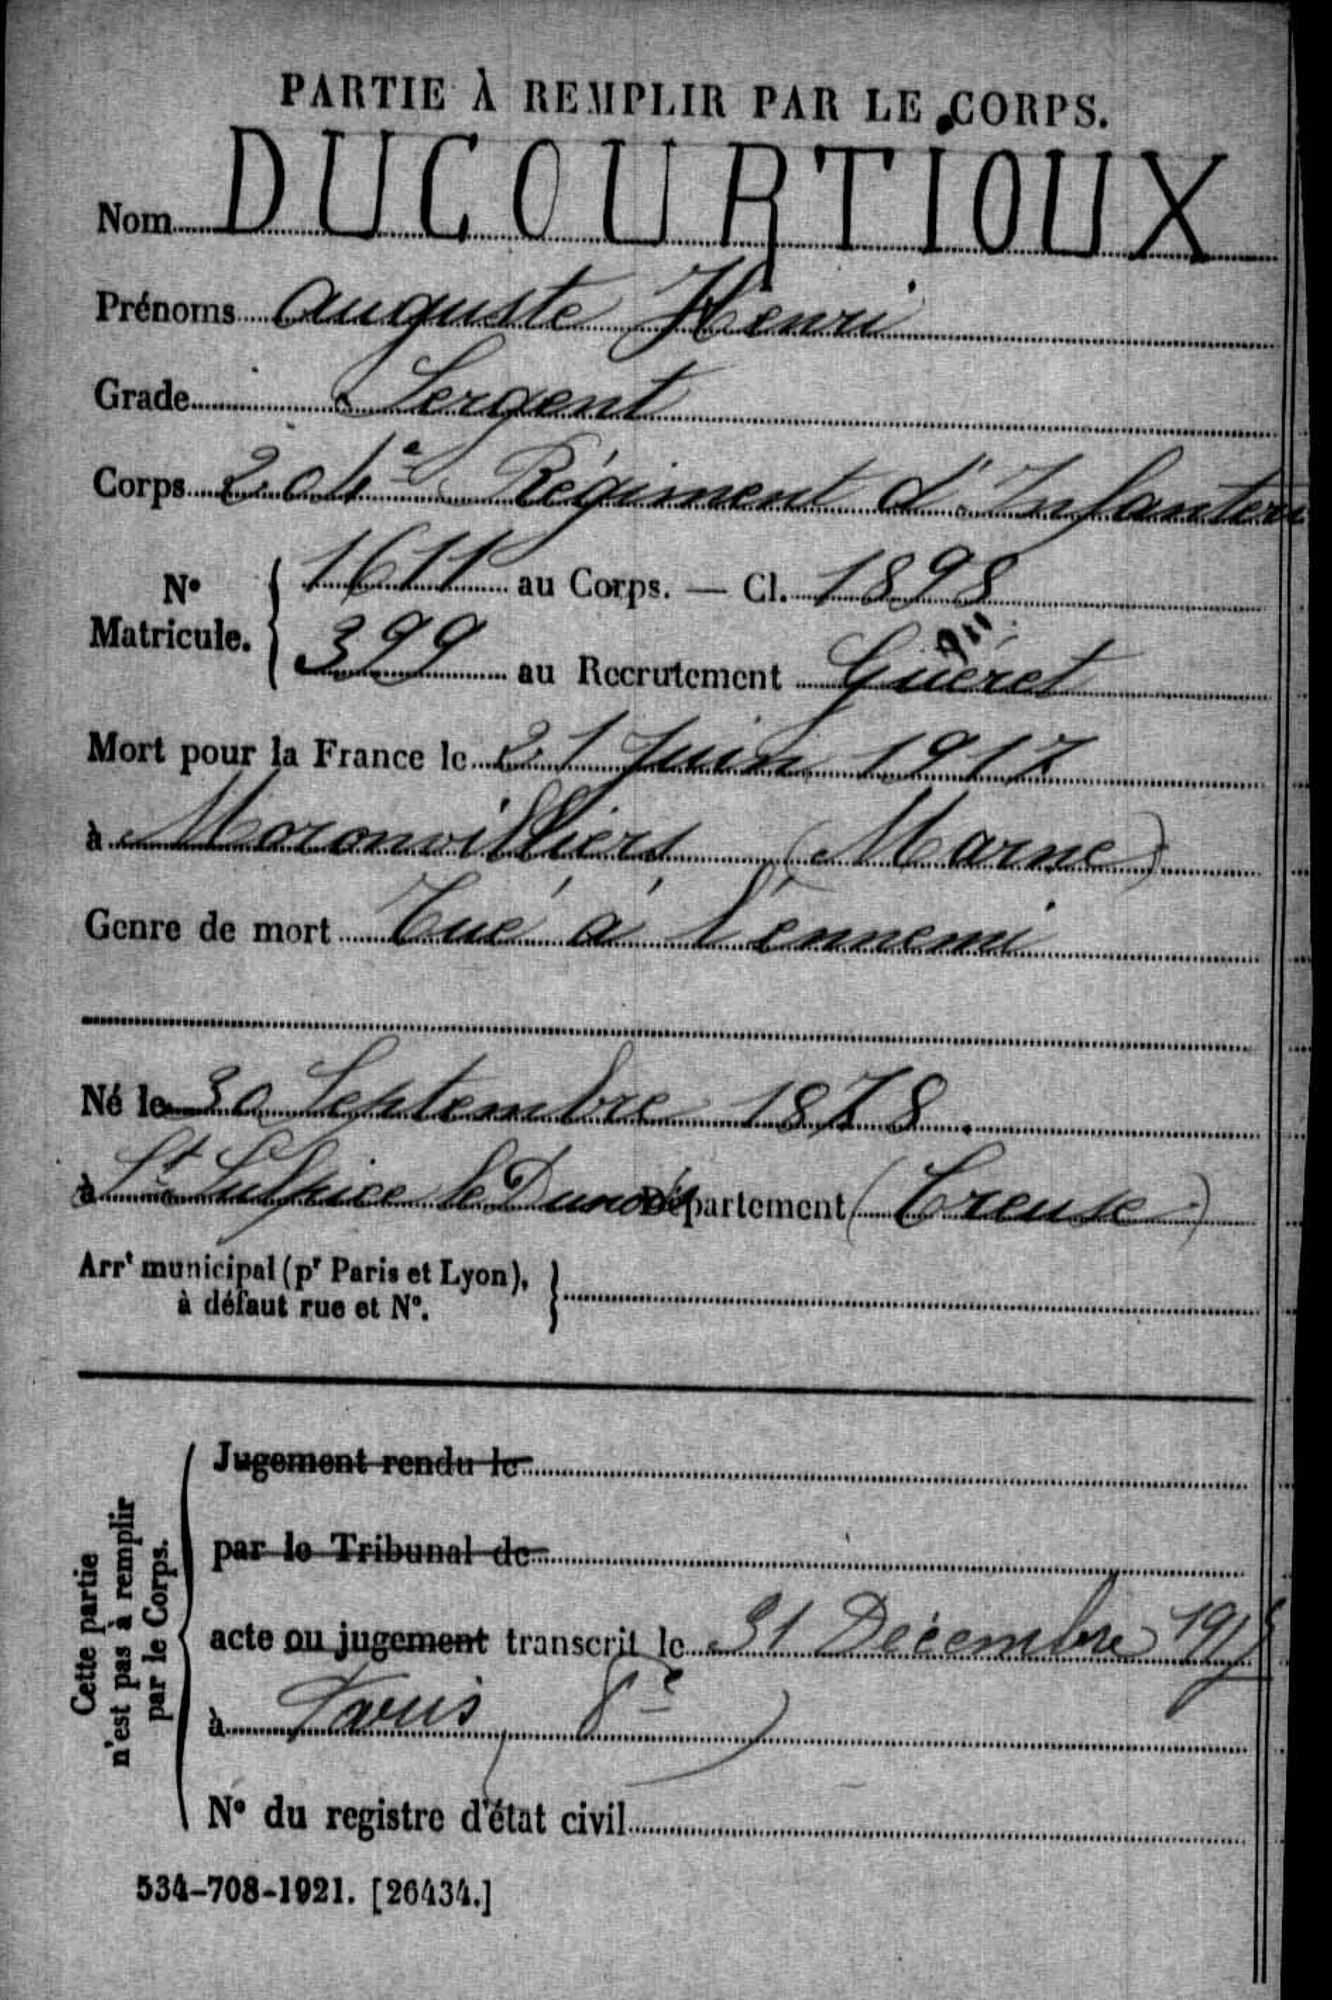 PARTIE À REMPLIR PAR LE CORPS.
Nom DUCOURTIOUX
Prénoms Auguste Henri
Grade Sergent
Corps 204e Régiment d'Infanterie
N° Matricule. { 1611 au Corps. — Cl. 1898
399 au Recrutement Guéret
Mort pour la France le 21 Juin 1917
à Moronvilliers (Marne)
Genre de mort Tué à l'ennemi
Né le 30 Septembre 1878.
à St Sulpice le Dunois Département (Creuse)
Arrt municipal (pr Paris et Lyon),
à défaut rue et N°.
Cette partie
n'est pas à remplir
par le Corps.
Jugement rendu le
par le Tribunal de
acte ou jugement transcrit le 31 Décembre
à Paris 8e
N° du registre d'état civil
534-708-1921. [26434.]